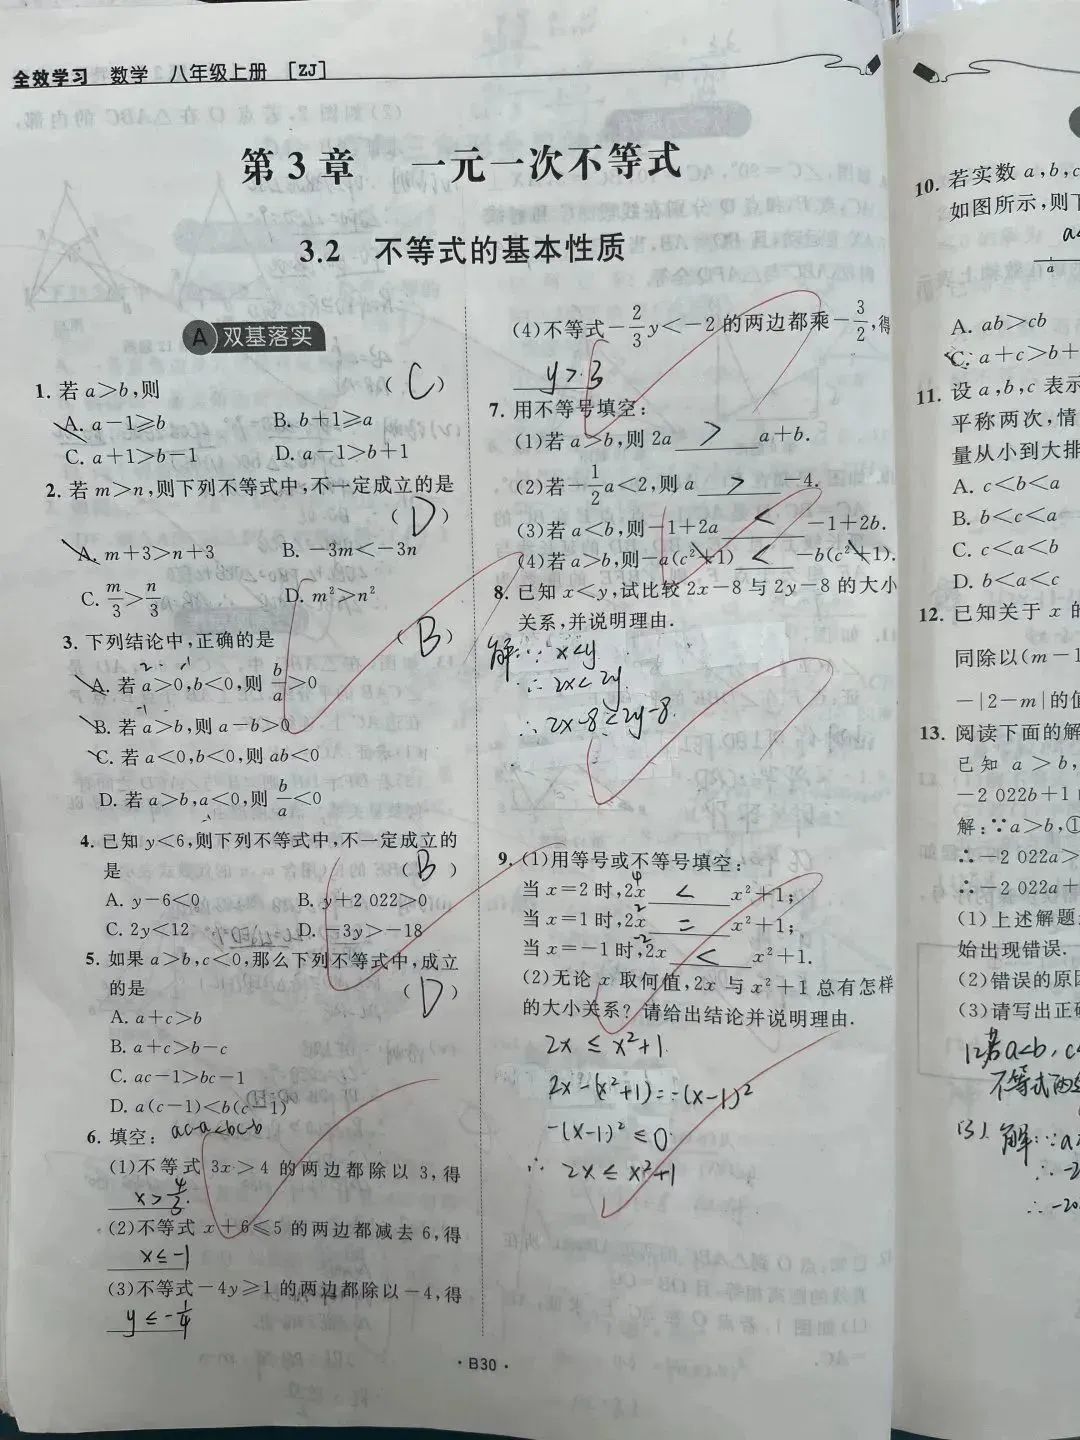 全效学习 数学 八年级上册 [ZJ]
第3章 一元一次不等式
3.2 不等式的基本性质
A 双基落实
1. 若 a>b,则 ( C )
A. a-1≥b B. b+1≥a
C. a+1>b-1 D. a-1>b+1
2. 若 m>n,则下列不等式中,不一定成立的是
( D )
A. m+3>n+3 B. -3m<-3n
C. m/3>n/3 D. m²>n²
3. 下列结论中,正确的是 ( B )
A. 若 a>0,b<0,则 b/a>0
B. 若 a>b,则 a-b>0
C. 若 a<0,b<0,则 ab<0
D. 若 a>b,a<0,则 b/a<0
4. 已知 y<6,则下列不等式中,不一定成立的
是 ( B )
A. y-6<0 B. y+2 022>0
C. 2y<12 D. -3y>-18
5. 如果 a>b,c<0,那么下列不等式中,成立
的是 ( D )
A. a+c>b
B. a+c>b-c
C. ac-1>bc-1
D. a(c-1)<b(c-1)
ac-a<bc-b
6. 填空:
(1)不等式 3x>4 的两边都除以 3,得
x>4/3.
(2)不等式 x+6≤5 的两边都减去 6,得
x≤-1
(3)不等式-4y≥1 的两边都除以-4,得
y≤-1/4
(4)不等式-2/3y<-2 的两边都乘-3/2,得
y>3
7. 用不等号填空:
(1)若 a>b,则 2a > a+b.
(2)若-1/2a<2,则 a > -4.
(3)若 a<b,则-1+2a < -1+2b.
(4)若 a>b,则-a(c²+1) < -b(c²+1).
8. 已知 x<y,试比较 2x-8 与 2y-8 的大小
关系,并说明理由.
解:∵x<y
∴2x<2y
∴2x-8≤2y-8.
9. (1)用等号或不等号填空:
当 x=2 时,2x < x²+1;
当 x=1 时,2x = x²+1;
当 x=-1 时,2x < x²+1.
(2)无论 x 取何值,2x 与 x²+1 总有怎样
的大小关系?请给出结论并说明理由.
2x≤x²+1.
2x-(x²+1)=-(x-1)²
-(x-1)²≤0
∴ 2x≤x²+1
·B30·
10. 若实数 a,b,c
如图所示,则下
a<
a
A. ab>cb
C. a+c>b+
11. 设 a,b,c 表示
平称两次,情
量从小到大排
A. c<b<a
B. b<c<a
C. c<a<b
D. b<a<c
12. 已知关于 x 的
同除以(m-1
-|2-m|的值
13. 阅读下面的解
已知 a>b,
-2 022b+1
解:∵a>b,①
∴-2 022a>
∴-2 022a+
(1)上述解题
始出现错误.
(2)错误的原因
(3)请写出正确
(2)若a<b,c<
不等式两
(3).解:∵a
∴-2
∴-20